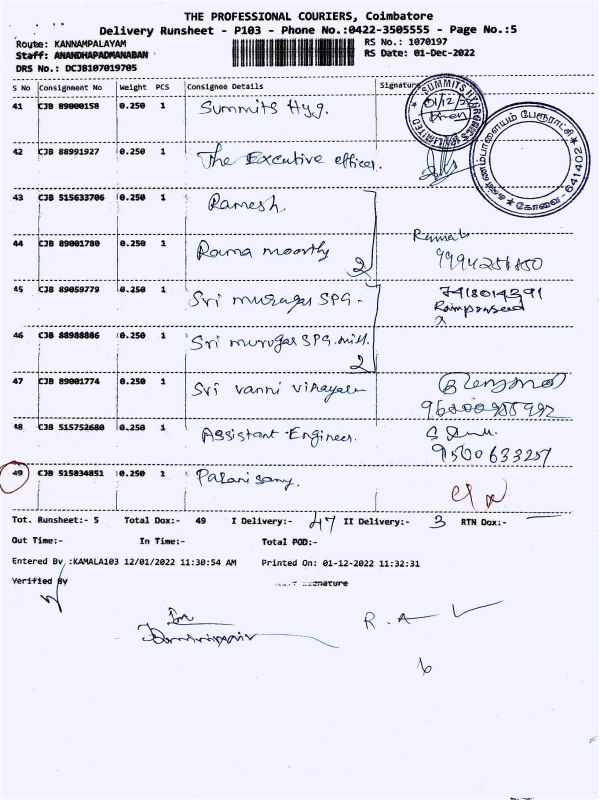 THE PROFESSIONAL COURIERS, Coimbatore
Delivery Runsheet - P103 - Phone No.:0422-3505555 - Page No.:5
Route: KANNAMPALAYAM
RS No.: 1070197
Staff: ANANDHAPADMANABAN
RS Date: 01-Dec-2022
DRS No.: DCJB107019705
S No Consignment No Weight PCS Consignee Details Signature
41 CJB 89000158 0.250 1 Summits Hyg.
42 CJB 88991927 0.250 1 The Executive officer.
43 CJB 515633706 0.250 1 Ramesh
44 CJB 89001780 0.250 1 Rama moorthy 2
45 CJB 89059779 0.250 1 Sri murugar SPG - 7418014391
46 CJB 88988886 0.250 1 Sri murugar SPG. mill. 2
47 CJB 89001774 0.250 1 Sri vanni vinayaga
48 CJB 515752680 0.250 1 Assistant Engineer. 9500633257
49 CJB 515834851 0.250 1 Palanisamy.
Tot. Runsheet:- 5 Total Dox:- 49 I Delivery:- 47 II Delivery:- 3 RTN Dox:- —
Out Time:- In Time:- Total POD:-
Entered By :KAMALA103 12/01/2022 11:30:54 AM Printed On: 01-12-2022 11:32:31
Verified By Signature
R.A